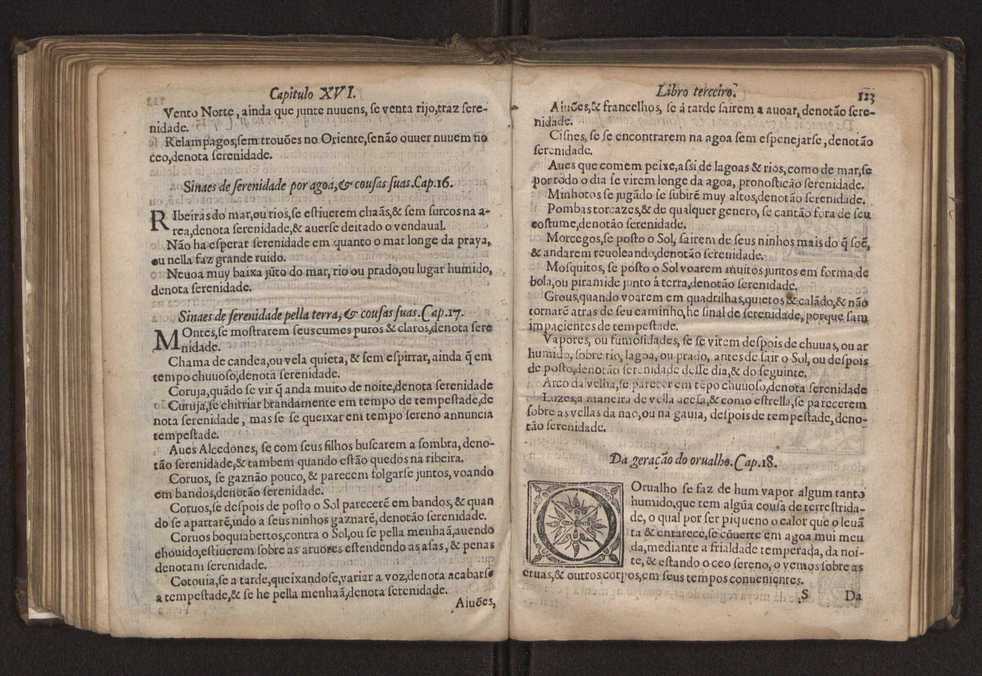 Capitulo XVI.
Vento Norte, ainda que junte nuuens, se venta rijo, traz sere-
nidade.
Relampagos, sem trouões no Oriente, senão ouuer nuuem no
ceo, denota serenidade.
Sinaes de serenidade por agoa, & cousas suas. Cap. 16.
RIbeiras do mar, ou rios, se estiuerem chaãs, & sem surcos na a-
rea, denota serenidade, & auerse deitado o vendaual.
Não ha esperar serenidade em quanto o mar longe da praya,
ou nella faz grande ruido.
Neuoa muy baixa jũto do mar, rio ou prado, ou lugar humido,
denota serenidade.
Sinaes de serenidade pella terra, & cousas suas. Cap. 17.
MOntes, se mostrarem seus cumes puros & claros, denota sere
nidade.
Chama de candea, ou vela quieta, & sem espirrar, ainda q̃ em
tempo chuuoso, denota serenidade.
Coruja, quãdo se vir q̃ anda muito de noite, denota serenidade
Curuja, se chirriar brandamente em tempo de tempestade, de
nota serenidade, mas se se queixar em tempo sereno annuncia
tempestade.
Aues Alcedones, se com seus filhos buscarem a sombra, deno-
tão serenidade, & tambem quando estão quedos na ribeira.
Coruos, se gaznão pouco, & parecem folgarse juntos, voando
em bandos, denotão serenidade.
Coruos, se despois de posto o Sol parecerẽ em bandos, & quan
do se apartarẽ, indo a seus ninhos gaznarẽ, denotão serenidade.
Coruos boquiabertos, contra o Sol, ou se pella menhaã, auendo
chouido, estiuerem sobre as aruores estendendo as asas, & penas
denotam serenidade.
Cotouia, se a tarde, queixandose, variar a voz, denota acabarse
a tempestade, & se he pella menhaã, denota serenidade.
Aiuões,
Libro terceiro.
123
Aiuões, & francelhos, se á tarde sairem a auoar, denotão sere-
nidade.
Cisnes, se se encontrarem na agoa sem espenejarse, denotão
serenidade.
Aues que comem peixe, assi de lagoas & rios, como de mar, se
por todo o dia se virem longe da agoa, pronosticão serenidade.
Minhotos se jugãdo se subirẽ muy altos, denotão serenidade.
Pombas torcazes, & de qualquer genero, se cantão fora de seu
costume, denotão serenidade.
Morcegos, se posto o Sol, sairem de seus ninhos mais do q̃ soẽ,
& andarem reuoleando, denotão serenidade.
Mosquitos, se posto o Sol voarem muitos juntos em forma de
bola, ou piramide junto à terra, denotão serenidade.
Grous, quando voarem em quadrilhas, quietos & calãdo, & não
tornarẽ atras de seu caminho, he sinal de serenidade, porque sam
impacientes de tempestade.
Vapores, ou fumosidades, se se virem despois de chuuas, ou ar
humido, sobre rio, lagoa, ou prado, antes de sair o Sol, ou despois
de posto, denotão serenidade desse dia, & do seguinte.
Arco da velha, se parecer em tẽpo chuuoso, denota serenidade
Luzes, a maneira de vella acesa, & como estrella, se parecerem
sobre as vellas da nao, ou na gauia, despois de tempestade, deno-
tão serenidade.
Da geração do orualho. Cap. 18.
OOrualho se faz de hum vapor algum tanto
humido, que tem algũa cousa de terrestrida-
de, o qual por ser piqueno o calor que o leuã
ta & enrarece, se cõuerte em agoa mui meu
da, mediante a frialdade temperada, da noi-
te, & estando o ceo sereno, o vemos sobre as
eruas, & outros corpos, em seus tempos conuenientes.
S Da